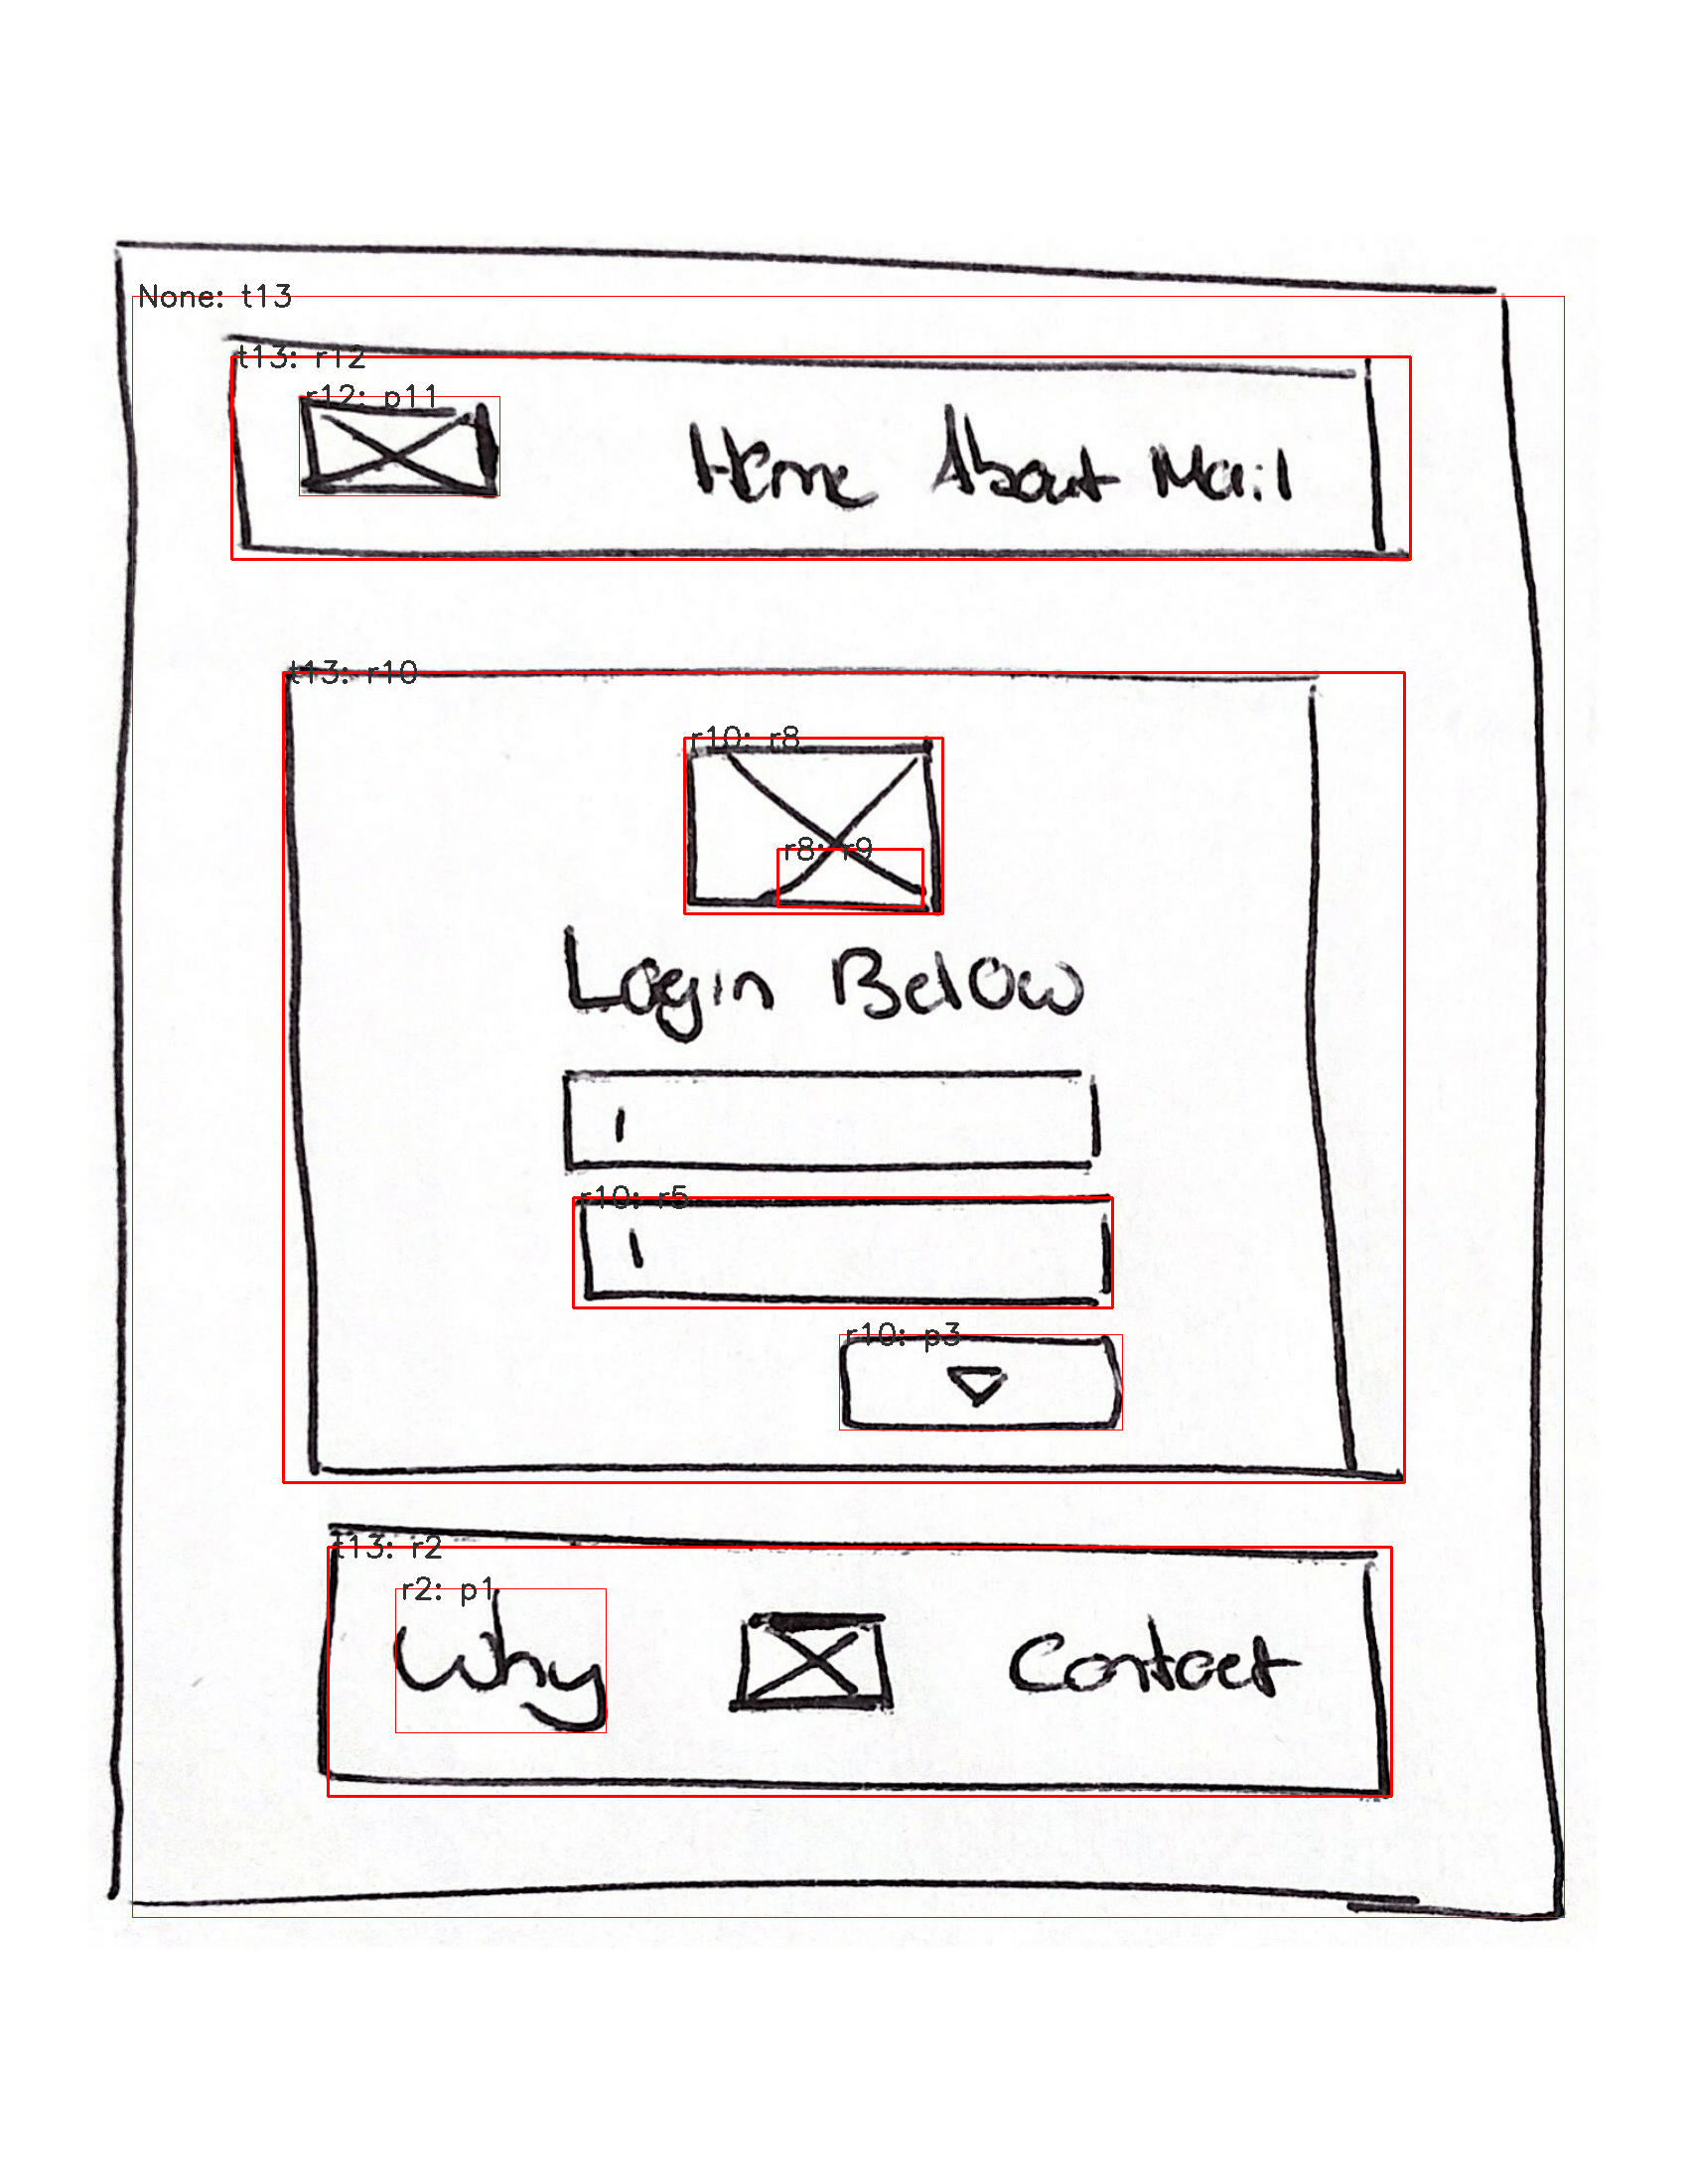 None: t13
t13: r12
r12: p11
Home About Mail
t13: r10
r10: r8
r8: r9
Login Below
r10: r5
r10: p3
t13: r2
r2: p1
Why Contact